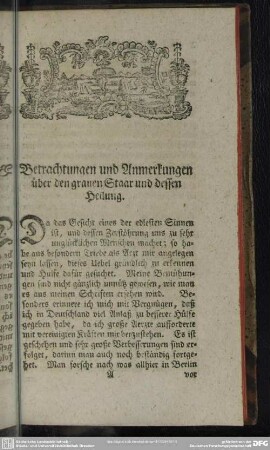 Betrachtungen und Anmerkungen
über den grauen Staar und dessen
Heilung.
Da das Gesicht eines der edlesten Sinnen
ist, und dessen Zerstöhrung uns zu sehr
unglücklichen Menschen machet; so ha-
be aus besondern Triebe als Arzt mir angelegen
seyn lassen, dieses Uebel gründlich zu erkennen
und Hülfe dafür gesuchet. Meine Bemühun-
gen sind nicht gänzlich umsonst gewesen, wie man
es aus meinen Schriften ersehen wird. Be-
sonders erinnere ich mich mit Vergnügen, daß
ich in Deutschland viel Anlaß zu besserer Hülfe
gegeben habe, da ich große Aerzte aufforderte
mit vereinigten Kräften mir beyzustehen. Es ist
geschehen und sehr große Verbesserungen sind er-
folget, darinn man auch noch beständig fortge-
het. Man forsche nach was allhier in Berlin
A vor